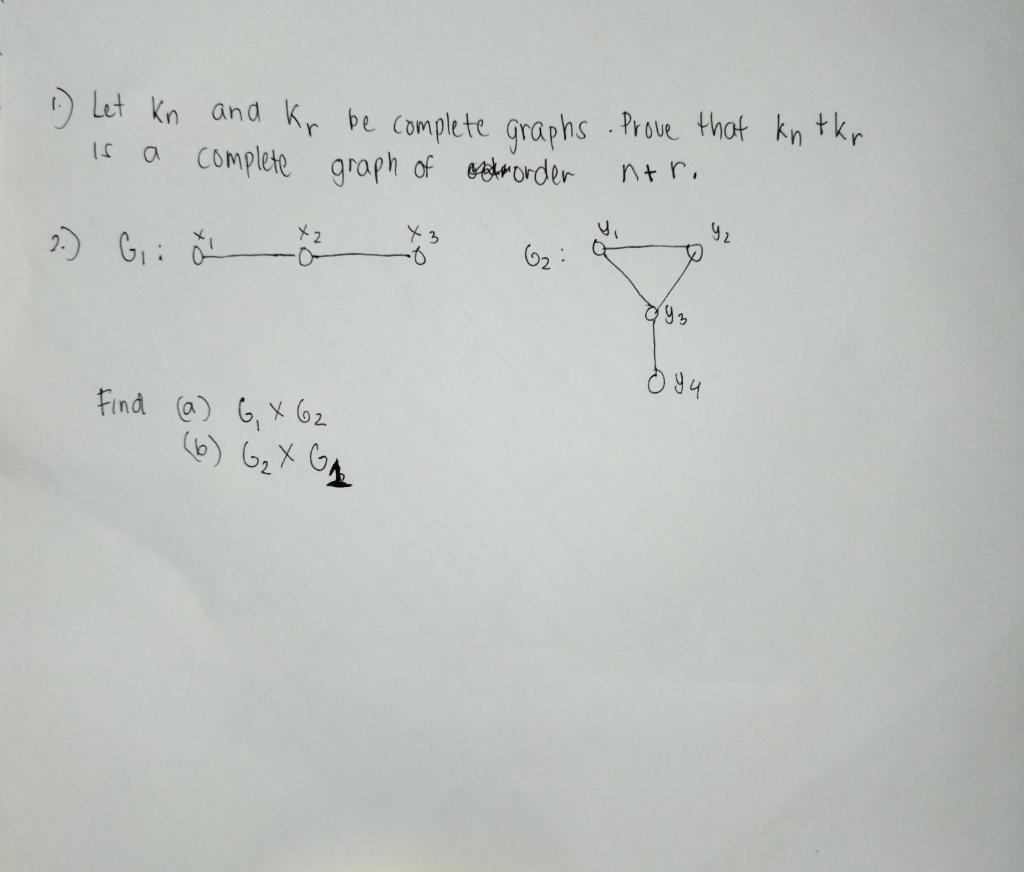 1.) Let Kn and Kr be complete graphs. Prove that kn + kr
is a complete graph of order n + r.
2.) G1: x1 x2 x3 G2: y1 y2
y3
y4
Find (a) G1 X G2
(b) G2 X G1